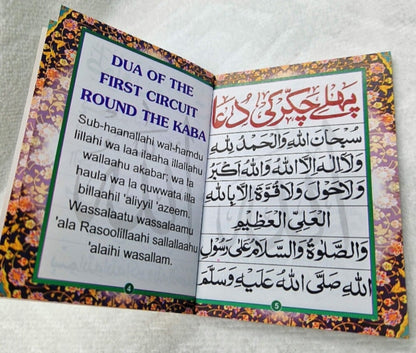 DUA OF THE
FIRST CIRCUIT
ROUND THE KABA
Sub-haanallahi wal-hamdu
lillahi wa laa ilaaha illallahu
wallaahu akabar; wa la
haula wa la quwwata illa
billaahil 'aliyyil 'azeem.
Wassalaatu wassalaamu
'ala Rasoolillaahi sallallaahu
'alaihi wasallam.
4
پہلے چکر کی دُعا
سُبْحَانَ اللهِ وَالْحَمْدُ لِلّٰهِ
وَلَا اِلٰهَ اِلَّا اللهُ وَاللهُ اَكْبَرُ
وَلَا حَوْلَ وَلَا قُوَّةَ اِلَّا بِاللهِ
الْعَلِيِّ الْعَظِيْمِ
وَالصَّلٰوةُ وَالسَّلَامُ عَلٰى رَسُوْلِ
اللهِ صَلَّى اللهُ عَلَيْهِ وَسَلَّمَ
5